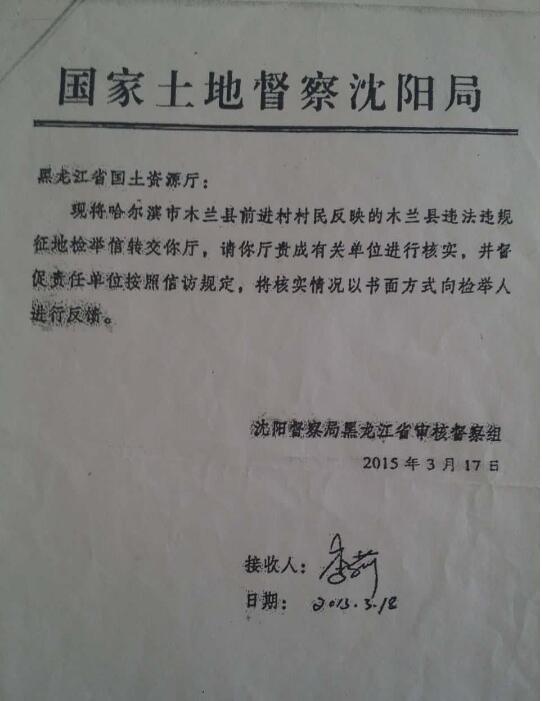 国家土地督察沈阳局
黑龙江省国土资源厅：
现将哈尔滨市木兰县前进村村民反映的木兰县违法违规
征地检举信转交你厅，请你厅责成有关单位进行核实，并督
促责任单位按照信访规定，将核实情况以书面方式向检举人
进行反馈。
沈阳督察局黑龙江省审核督察组
2015年3月17日
接收人：李莉
日期：2013.3.18